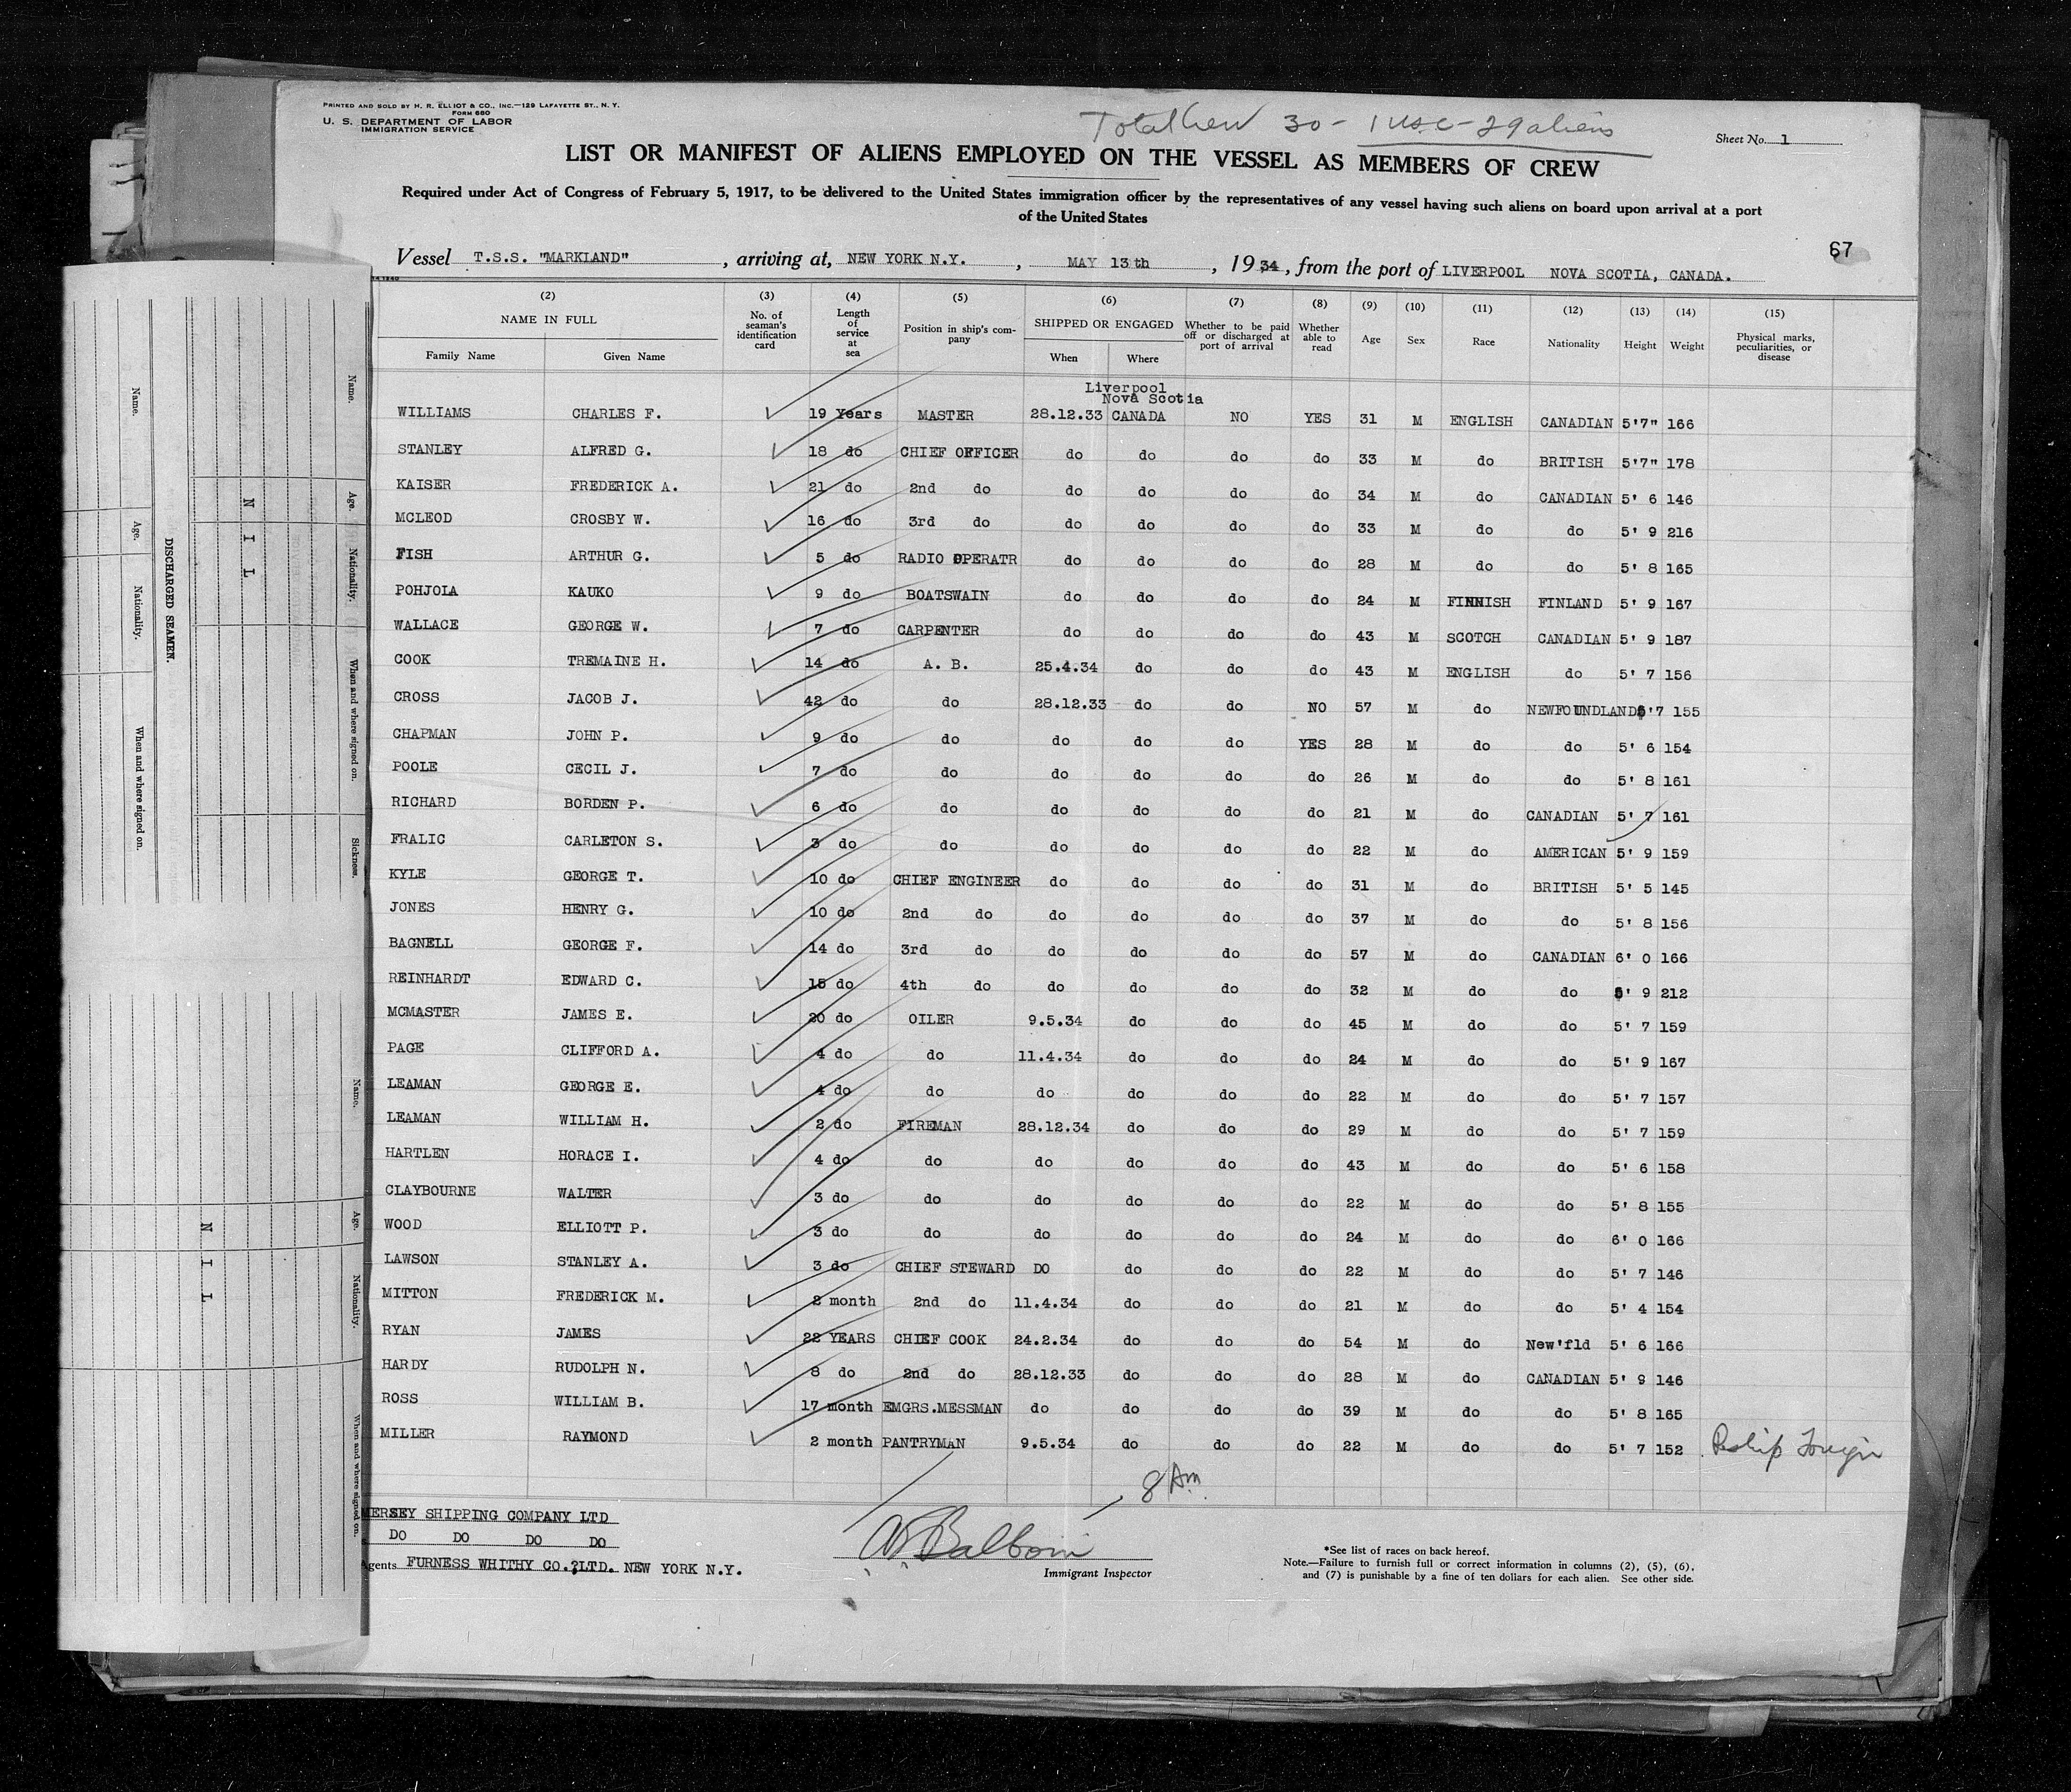 PRINTED AND SOLD BY H. R. ELLIOT & CO., INC.—129 LAFAYETTE ST., N. Y.
FORM 680
U. S. DEPARTMENT OF LABOR
IMMIGRATION SERVICE
Total Crew 30 - 1 USC - 29 aliens
Sheet No. 1
LIST OR MANIFEST OF ALIENS EMPLOYED ON THE VESSEL AS MEMBERS OF CREW
Required under Act of Congress of February 5, 1917, to be delivered to the United States immigration officer by the representatives of any vessel having such aliens on board upon arrival at a port
of the United States
67
Vessel T.S.S. "MARKLAND", arriving at, NEW YORK N.Y., MAY 13th, 1934, from the port of LIVERPOOL NOVA SCOTIA, CANADA.
(2) (3) (4) (5) (6) (7) (8) (9) (10) (11) (12) (13) (14) (15)
NAME IN FULL No. of seaman's identification card Length of service at sea Position in ship's company SHIPPED OR ENGAGED Whether to be paid off or discharged at port of arrival Whether able to read Age Sex Race Nationality Height Weight Physical marks, peculiarities, or disease
Family Name Given Name When Where
Liverpool
Nova Scotia
WILLIAMS CHARLES F. 19 Years MASTER 28.12.33 CANADA NO YES 31 M ENGLISH CANADIAN 5'7" 166
STANLEY ALFRED G. 18 do CHIEF OFFICER do do do do 33 M do BRITISH 5'7" 178
KAISER FREDERICK A. 21 do 2nd do do do do do 34 M do CANADIAN 5' 6 146
MCLEOD CROSBY W. 16 do 3rd do do do do do 33 M do do 5' 9 216
FISH ARTHUR G. 5 do RADIO OPERATR do do do do 28 M do do 5' 8 165
POHJOLA KAUKO 9 do BOATSWAIN do do do do 24 M FINNISH FINLAND 5' 9 167
WALLACE GEORGE W. 7 do CARPENTER do do do do 43 M SCOTCH CANADIAN 5' 9 187
COOK TREMAINE H. 14 do A. B. 25.4.34 do do do 43 M ENGLISH do 5' 7 156
CROSS JACOB J. 42 do do 28.12.33 do do NO 57 M do NEWFOUNDLAND 5'7 155
CHAPMAN JOHN P. 9 do do do do do YES 28 M do do 5' 6 154
POOLE CECIL J. 7 do do do do do do 26 M do do 5' 8 161
RICHARD BORDEN P. 6 do do do do do do 21 M do CANADIAN 5' 7 161
FRALIC CARLETON S. 3 do do do do do do 22 M do AMERICAN 5' 9 159
KYLE GEORGE T. 10 do CHIEF ENGINEER do do do do 31 M do BRITISH 5' 5 145
JONES HENRY G. 10 do 2nd do do do do do 37 M do do 5' 8 156
BAGNELL GEORGE F. 14 do 3rd do do do do do 57 M do CANADIAN 6' 0 166
REINHARDT EDWARD C. 15 do 4th do do do do do 32 M do do 5' 9 212
MCMASTER JAMES E. 20 do OILER 9.5.34 do do do 45 M do do 5' 7 159
PAGE CLIFFORD A. 4 do do 11.4.34 do do do 24 M do do 5' 9 167
LEAMAN GEORGE E. 4 do do do do do do 22 M do do 5' 7 157
LEAMAN WILLIAM H. 2 do FIREMAN 28.12.34 do do do 29 M do do 5' 7 159
HARTLEN HORACE I. 4 do do do do do do 43 M do do 5' 6 158
CLAYBOURNE WALTER 3 do do do do do do 22 M do do 5' 8 155
WOOD ELLIOTT P. 3 do do do do do do 24 M do do 6' 0 166
LAWSON STANLEY A. 3 do CHIEF STEWARD DO do do do 22 M do do 5' 7 146
MITTON FREDERICK M. 2 month 2nd do 11.4.34 do do do 21 M do do 5' 4 154
RYAN JAMES 22 YEARS CHIEF COOK 24.2.34 do do do 54 M do New'fld 5' 6 166
HARDY RUDOLPH N. 8 do 2nd do 28.12.33 do do do 28 M do CANADIAN 5' 9 146
ROSS WILLIAM B. 17 month EMGRS.MESSMAN do do do do 39 M do do 5' 8 165
MILLER RAYMOND 2 month PANTRYMAN 9.5.34 do do do 22 M do do 5' 7 152 Reship Foreign
8 Am.
MERSEY SHIPPING COMPANY LTD
DO DO DO DO
Agents FURNESS WHITHY CO.?LTD. NEW YORK N.Y.
Immigrant Inspector
*See list of races on back hereof.
Note.—Failure to furnish full or correct information in columns (2), (5), (6),
and (7) is punishable by a fine of ten dollars for each alien. See other side.
DISCHARGED SEAMEN.
Name. Age. Nationality. When and where signed on.
Name. Age. Nationality. When and where signed on. Sickness.
N I L
Name. Age. Nationality. When and where signed on.
N I L